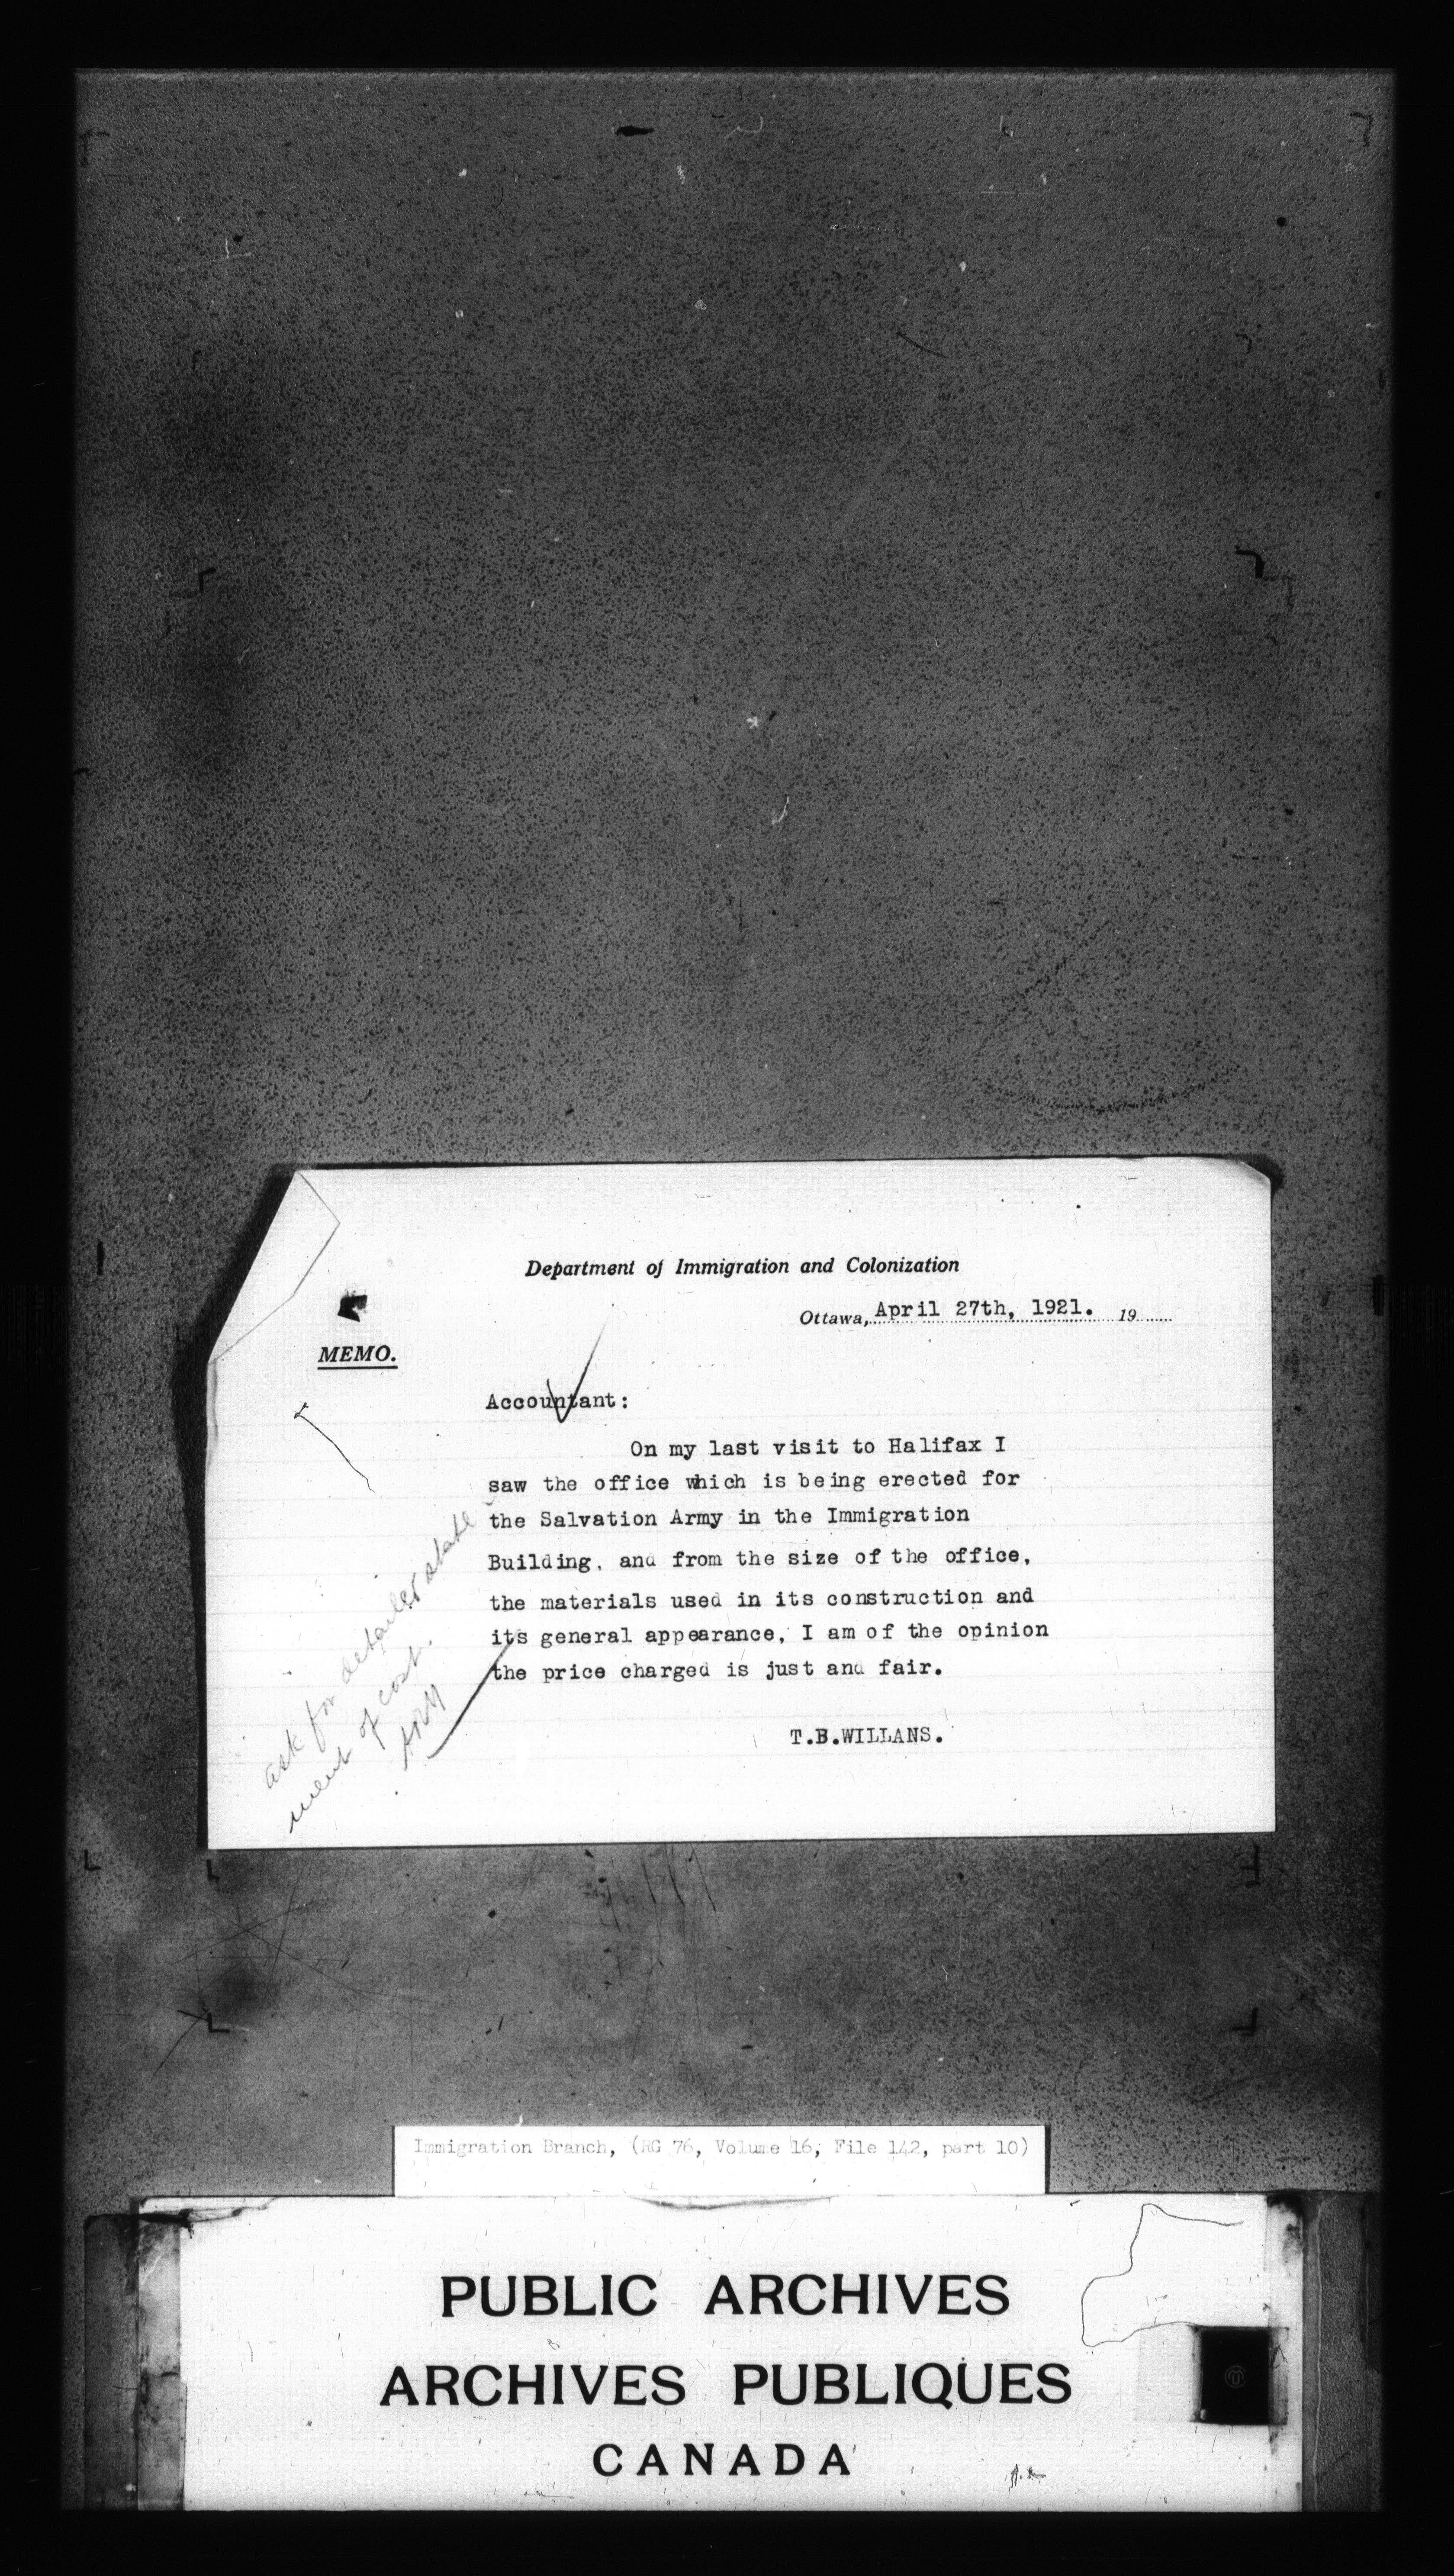 Department of Immigration and Colonization
Ottawa, April 27th, 1921. 19
MEMO.
Accountant:
On my last visit to Halifax I
saw the office which is being erected for
the Salvation Army in the Immigration
Building, and from the size of the office,
the materials used in its construction and
its general appearance, I am of the opinion
the price charged is just and fair.
T.B.WILLANS.
ask for detailed state
ment of cost.
Immigration Branch, (RG 76, Volume 16, File 142, part 10)
PUBLIC ARCHIVES
ARCHIVES PUBLIQUES
CANADA